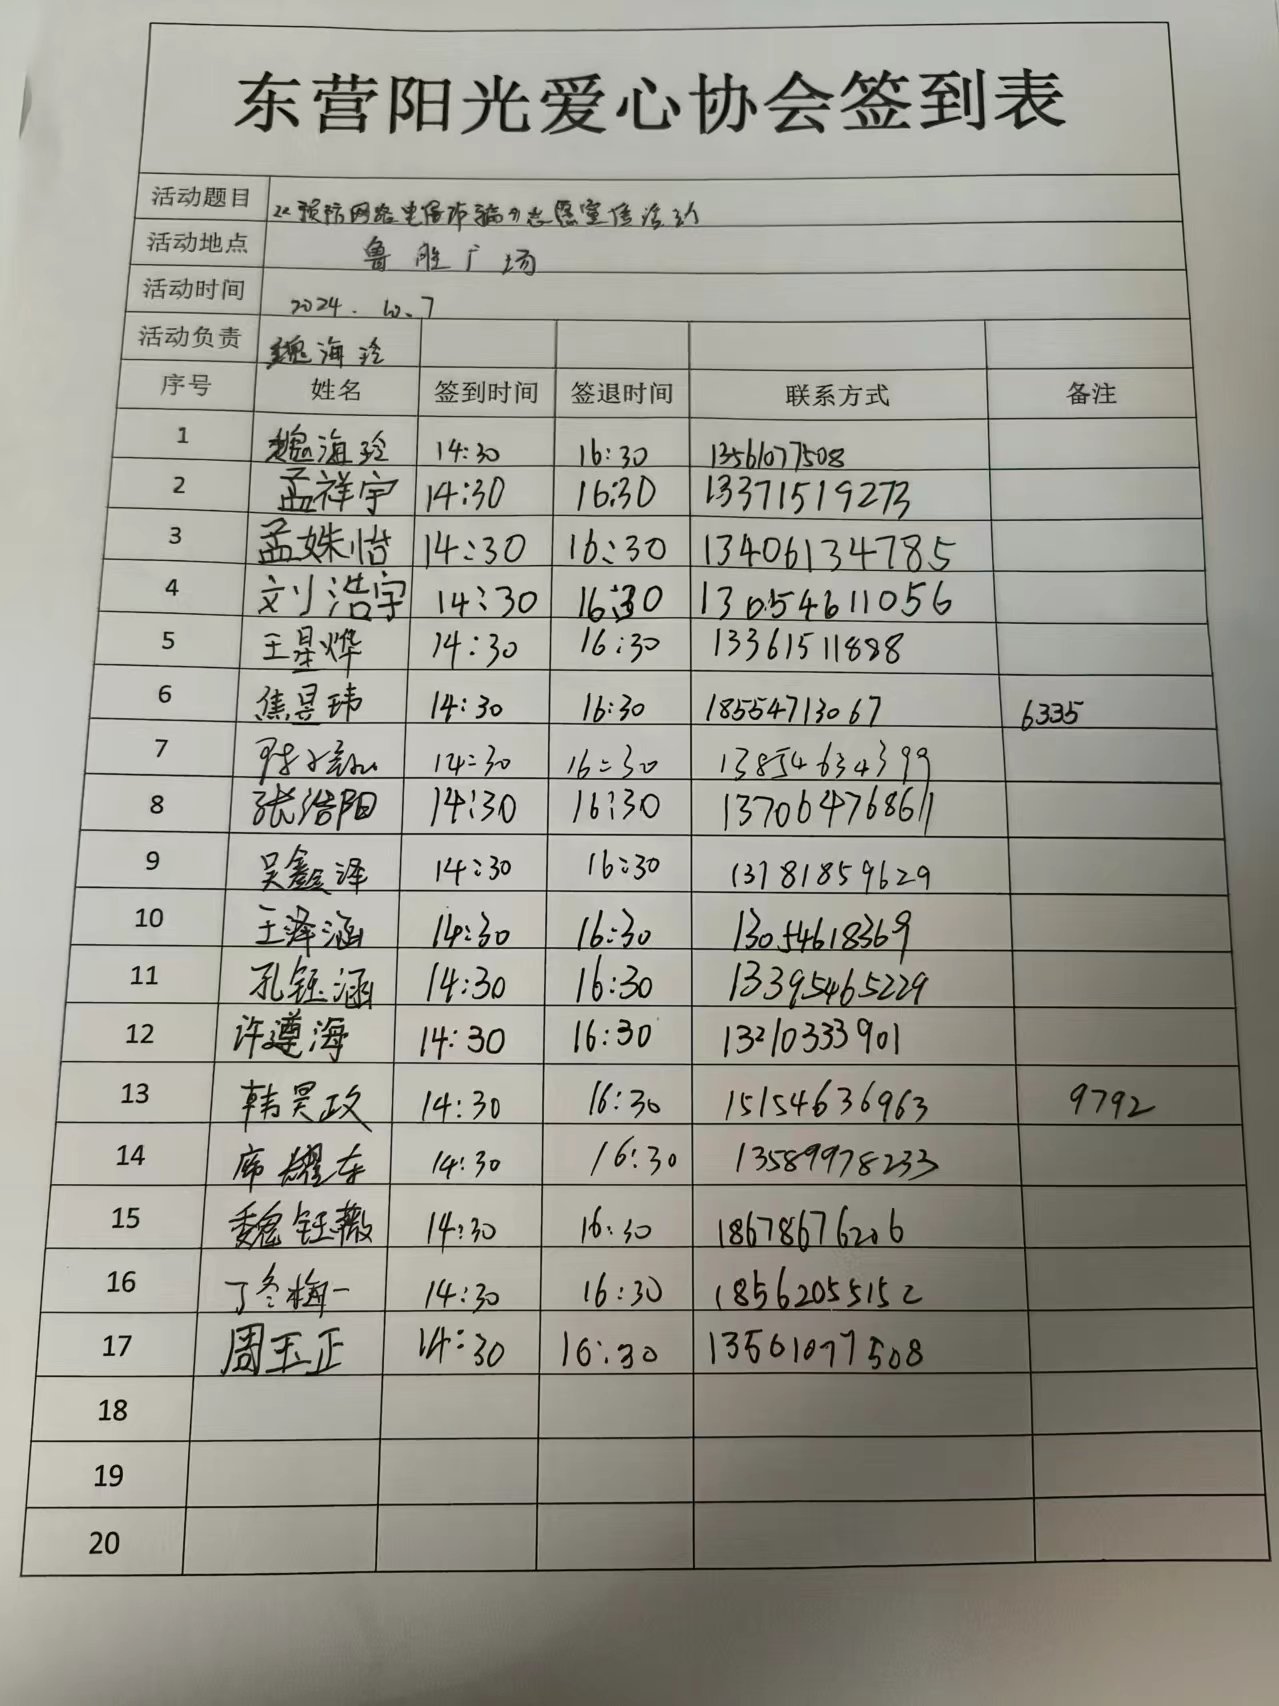 东营阳光爱心协会签到表
活动题目 《预防网络电信诈骗》志愿宣传活动
活动地点 鲁胜广场
活动时间 2024.10.7
活动负责 魏海玲
序号 姓名 签到时间 签退时间 联系方式 备注
1 魏海玲 14:30 16:30 13561077508
2 孟祥宇 14:30 16:30 13371519273
3 孟姝怡 14:30 16:30 13406134785
4 刘浩宇 14:30 16:30 13054611056
5 王星烨 14:30 16:30 13361511888
6 焦昱玮 14:30 16:30 18554713067 6335
7 14:30 16:30 13854634399
8 张浩阳 14:30 16:30 13706476861
9 吴鑫泽 14:30 16:30 13781859629
10 王泽涵 14:30 16:30 13054618369
11 孔钰涵 14:30 16:30 13395465229
12 许遵海 14:30 16:30 13210333901
13 韩昊政 14:30 16:30 15154636963 9792
14 席耀东 14:30 16:30 13589978233
15 魏钰薇 14:30 16:30 18678676206
16 丁冬梅 14:30 16:30 18562055152
17 周玉正 14:30 16:30 13561077508
18
19
20